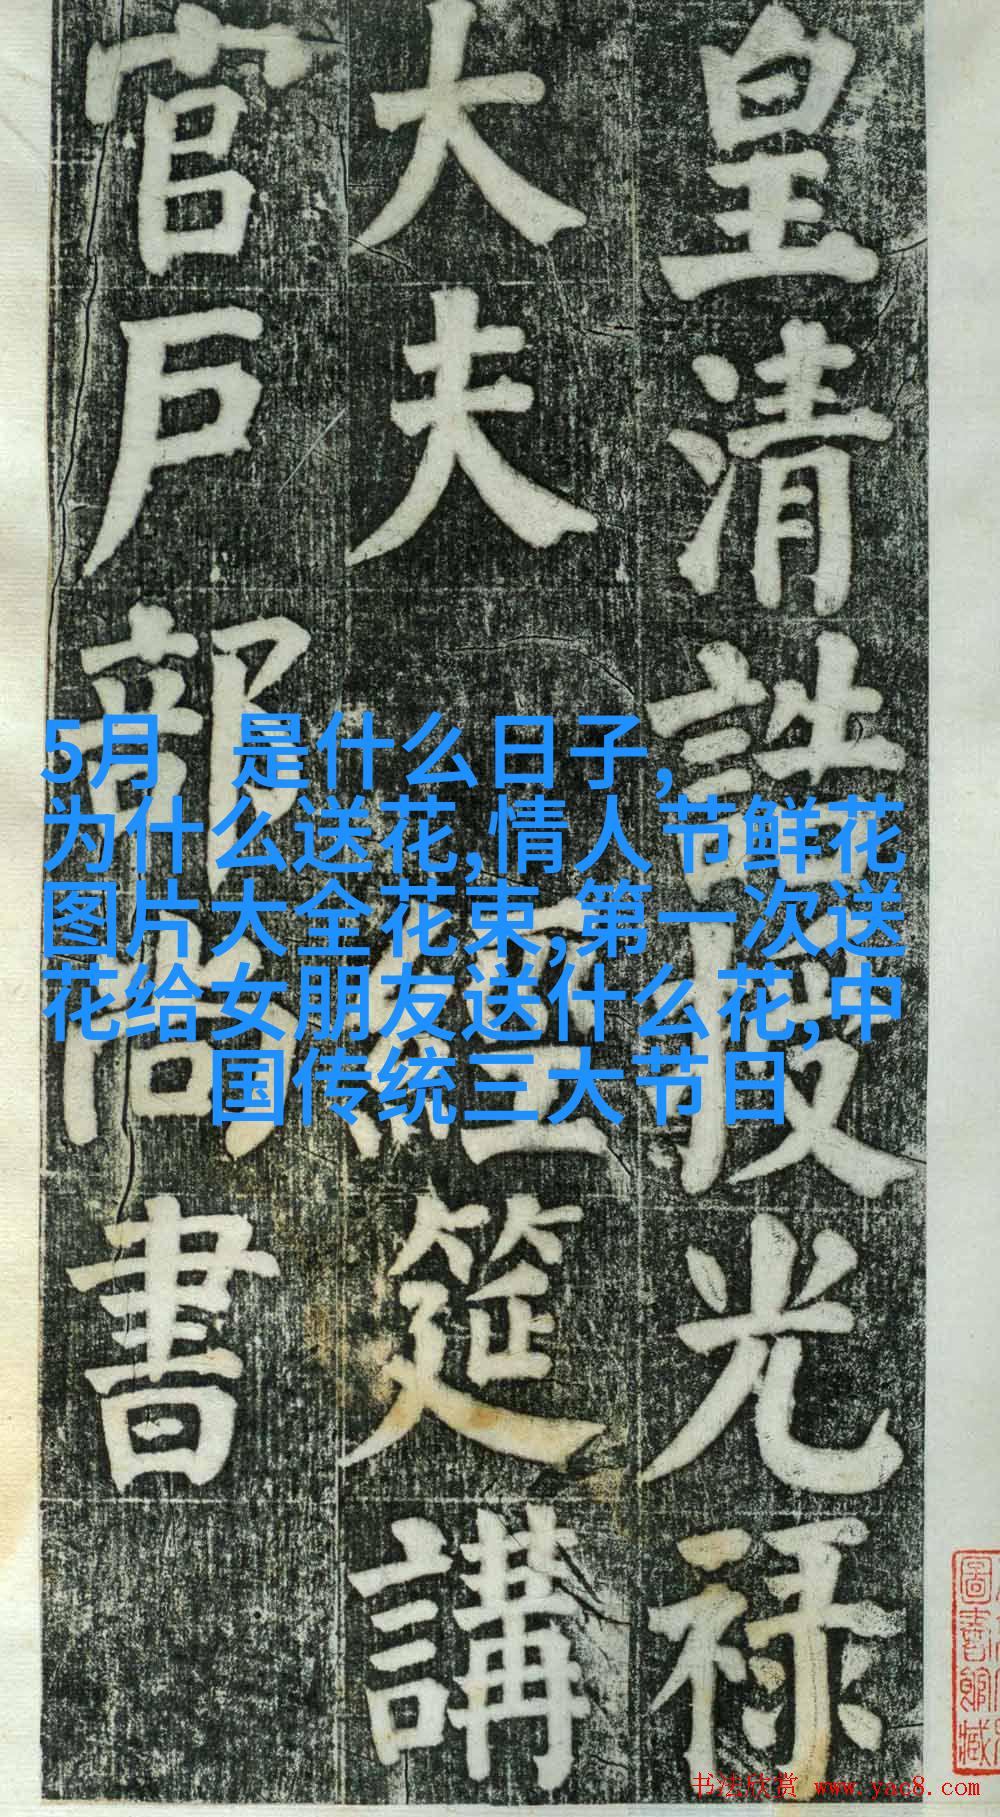 皇清誥授光禄
大夫 經筵講
官戶部尚書
5月 是什么日子,
为什么送花,情人节鲜花
图片大全花束,第一次送
花给女朋友送什么花,中
国传统三大节日
圖書館藏
书法欣赏 www.yac8.com